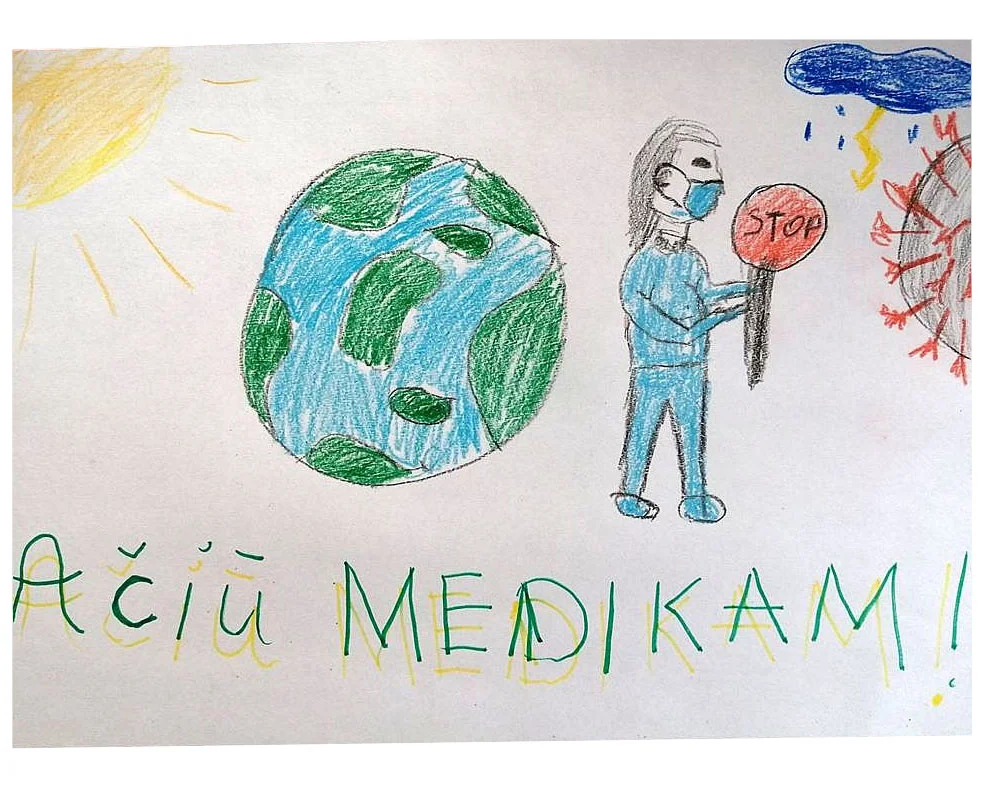 STOP
Ačiū MEDIKAM!